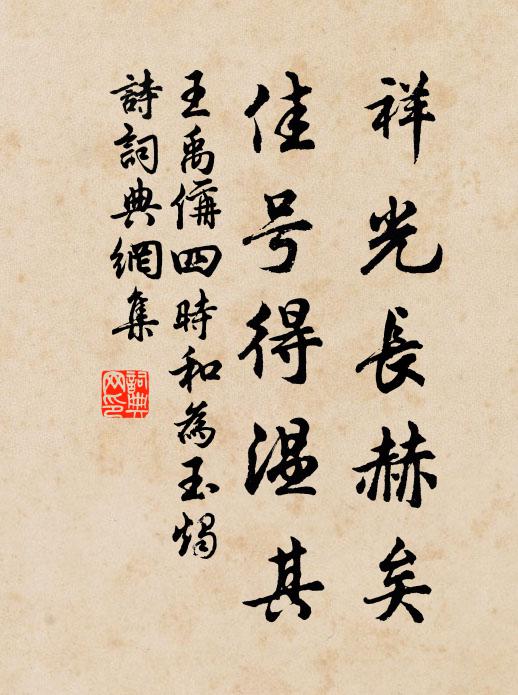 祥光長赫矣
佳号得温其
王禹偁四時和為玉燭
詩詞典網集
詞典網印